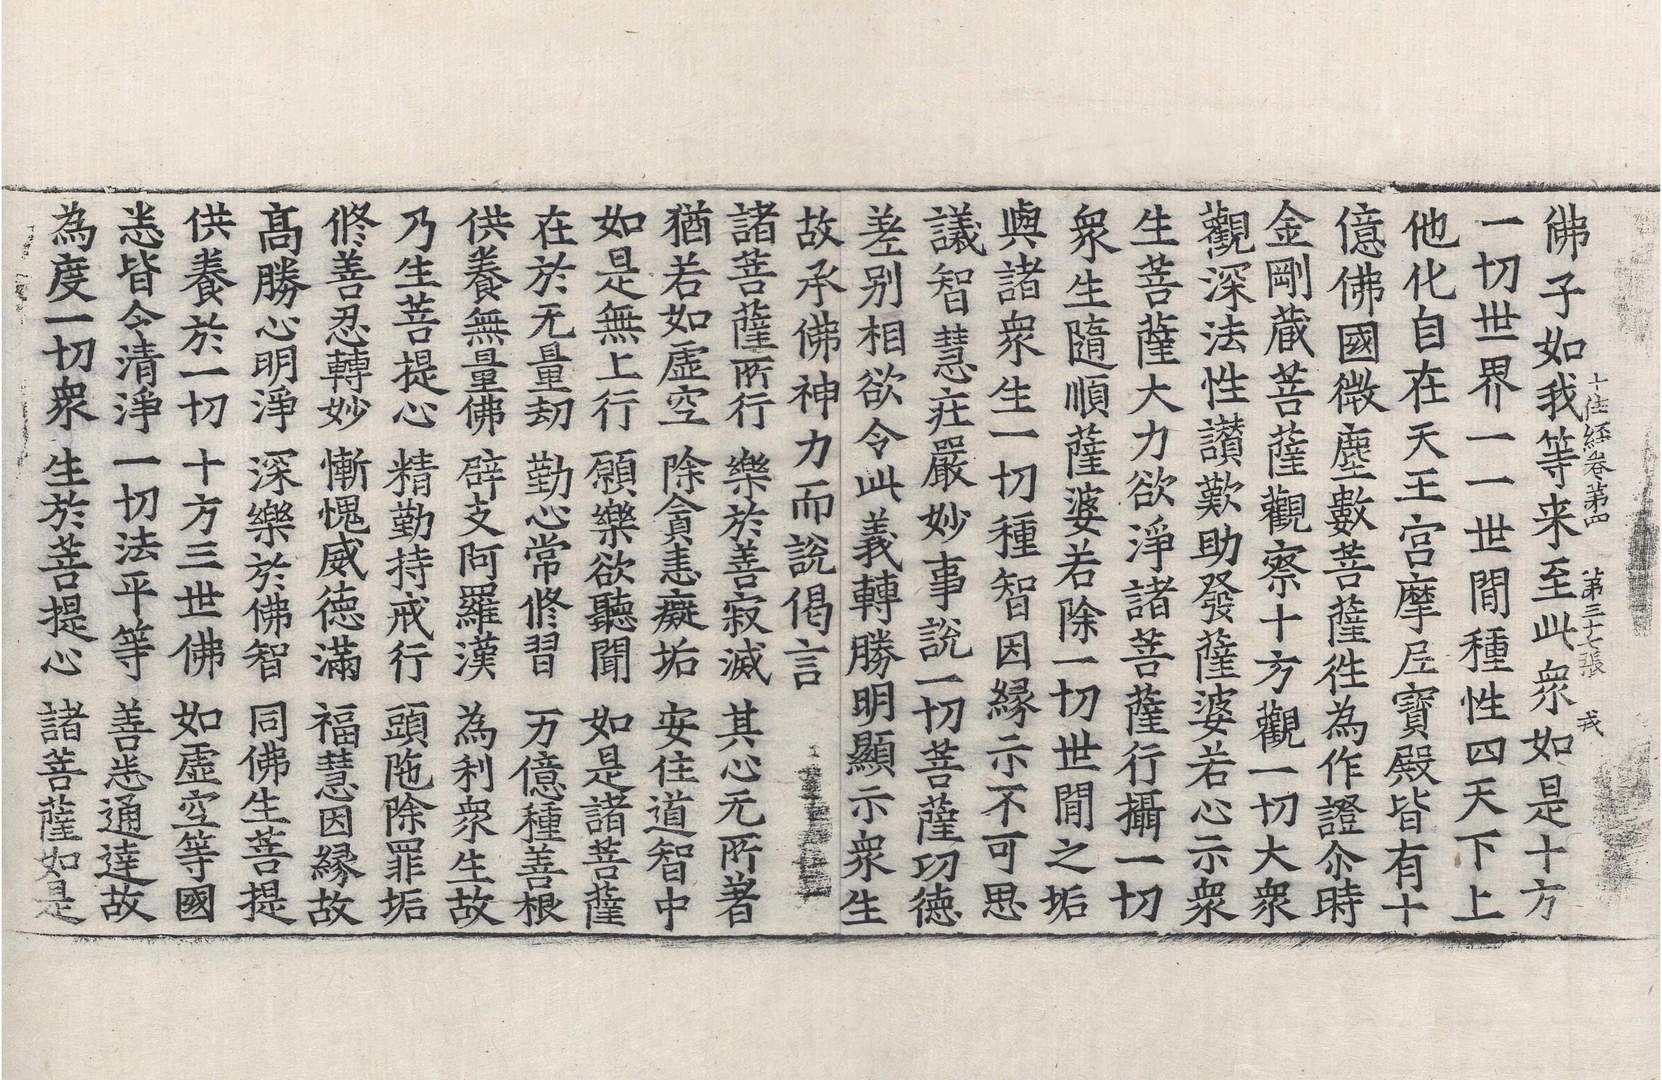 十住経卷第四　第三十七張　戎
佛子如我等来至此衆如是十方
一切世界一一世間種性四天下上
他化自在天王宮摩尼寶殿皆有十
億佛國微塵數菩薩徃為作證尒時
金剛藏菩薩觀察十方觀一切大衆
觀深法性讃歎助發薩婆若心示衆
生菩薩大力欲淨諸菩薩行攝一切
衆生隨順薩婆若除一切世間之垢
與諸衆生一切種智因縁示不可思
議智慧莊嚴妙事說一切菩薩功德
差别相欲令此義轉勝明顯示衆生
故承佛神力而說偈言
諸菩薩所行　樂於善寂滅　其心无所著
猶若如虛空　除貪恚癡垢　安住道智中
如是無上行　願樂欲聽聞　如是諸菩薩
在於无量劫　勤心常修習　万億種善根
供養無量佛　辟支阿羅漢　為利衆生故
乃生菩提心　精勤持戒行　頭陁除罪垢
修善忍轉妙　慚愧威德滿　福慧因縁故
髙勝心明淨　深樂於佛智　同佛生菩提
供養於一切　十方三世佛　如虛空等國
悉皆令清淨　一切法平等　善悉通達故
為度一切衆　生於菩提心　諸菩薩如是